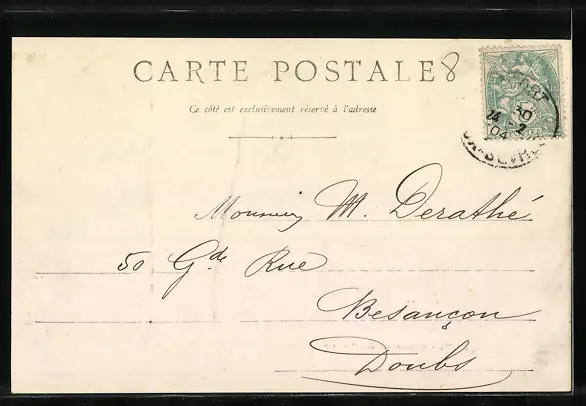 CARTE POSTALE 8
Ce côté est exclusivement réservé à l'adresse
24 10
2
04
Monsieur M. Derathé
50 Gde Rue
Besançon
Doubs